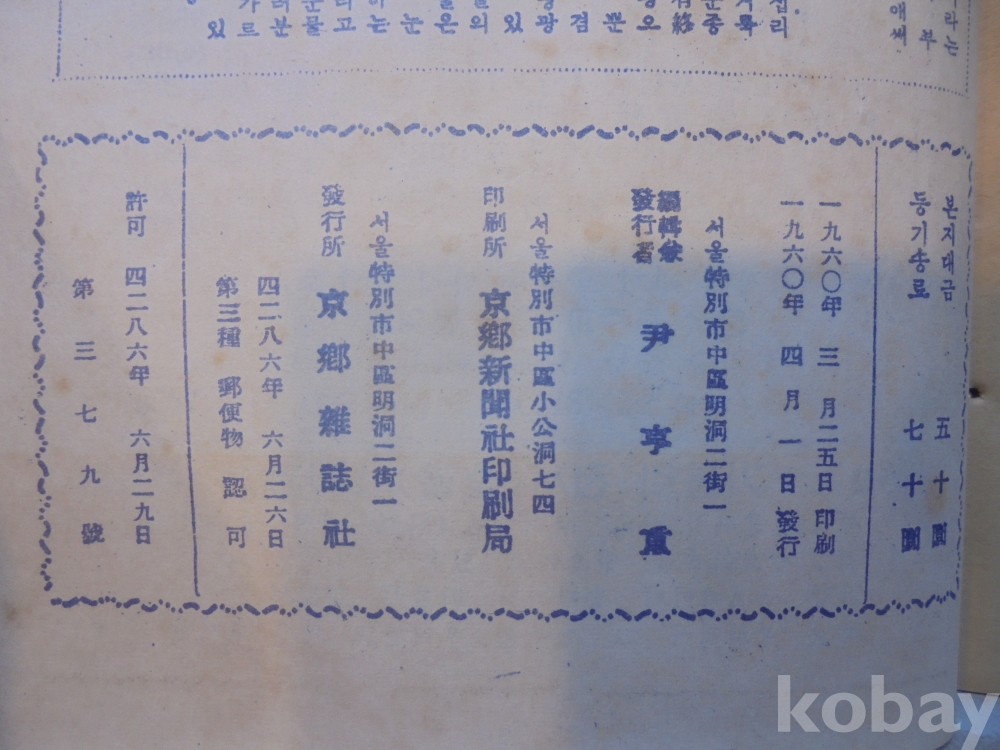 본지대금 五十圜
등기송료 七十圜
一九六〇年 三月二五日 印刷
一九六〇年 四月一日 發行
서울特別市中區明洞二街一
編輯兼
發行者 尹亨重
서울特別市中區小公洞七四
印刷所 京鄕新聞社印刷局
서울特別市中區明洞二街一
發行所 京鄕雜誌社
四二八六年 六月二六日
第三種 郵便物 認可
許可 四二八六年 六月二九日
第三七九號
kobay